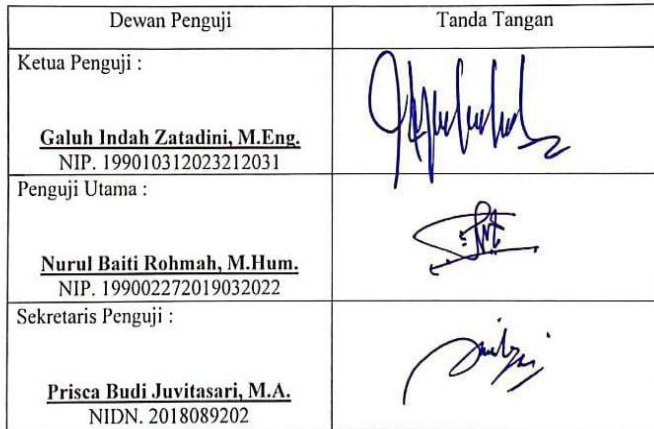 Dewan Penguji
Tanda Tangan
Ketua Penguji :
Galuh Indah Zatadini, M.Eng.
NIP. 199010312023212031
Penguji Utama :
Nurul Baiti Rohmah, M.Hum.
NIP. 199002272019032022
Sekretaris Penguji :
Prisca Budi Juvitasari, M.A.
NIDN. 2018089202